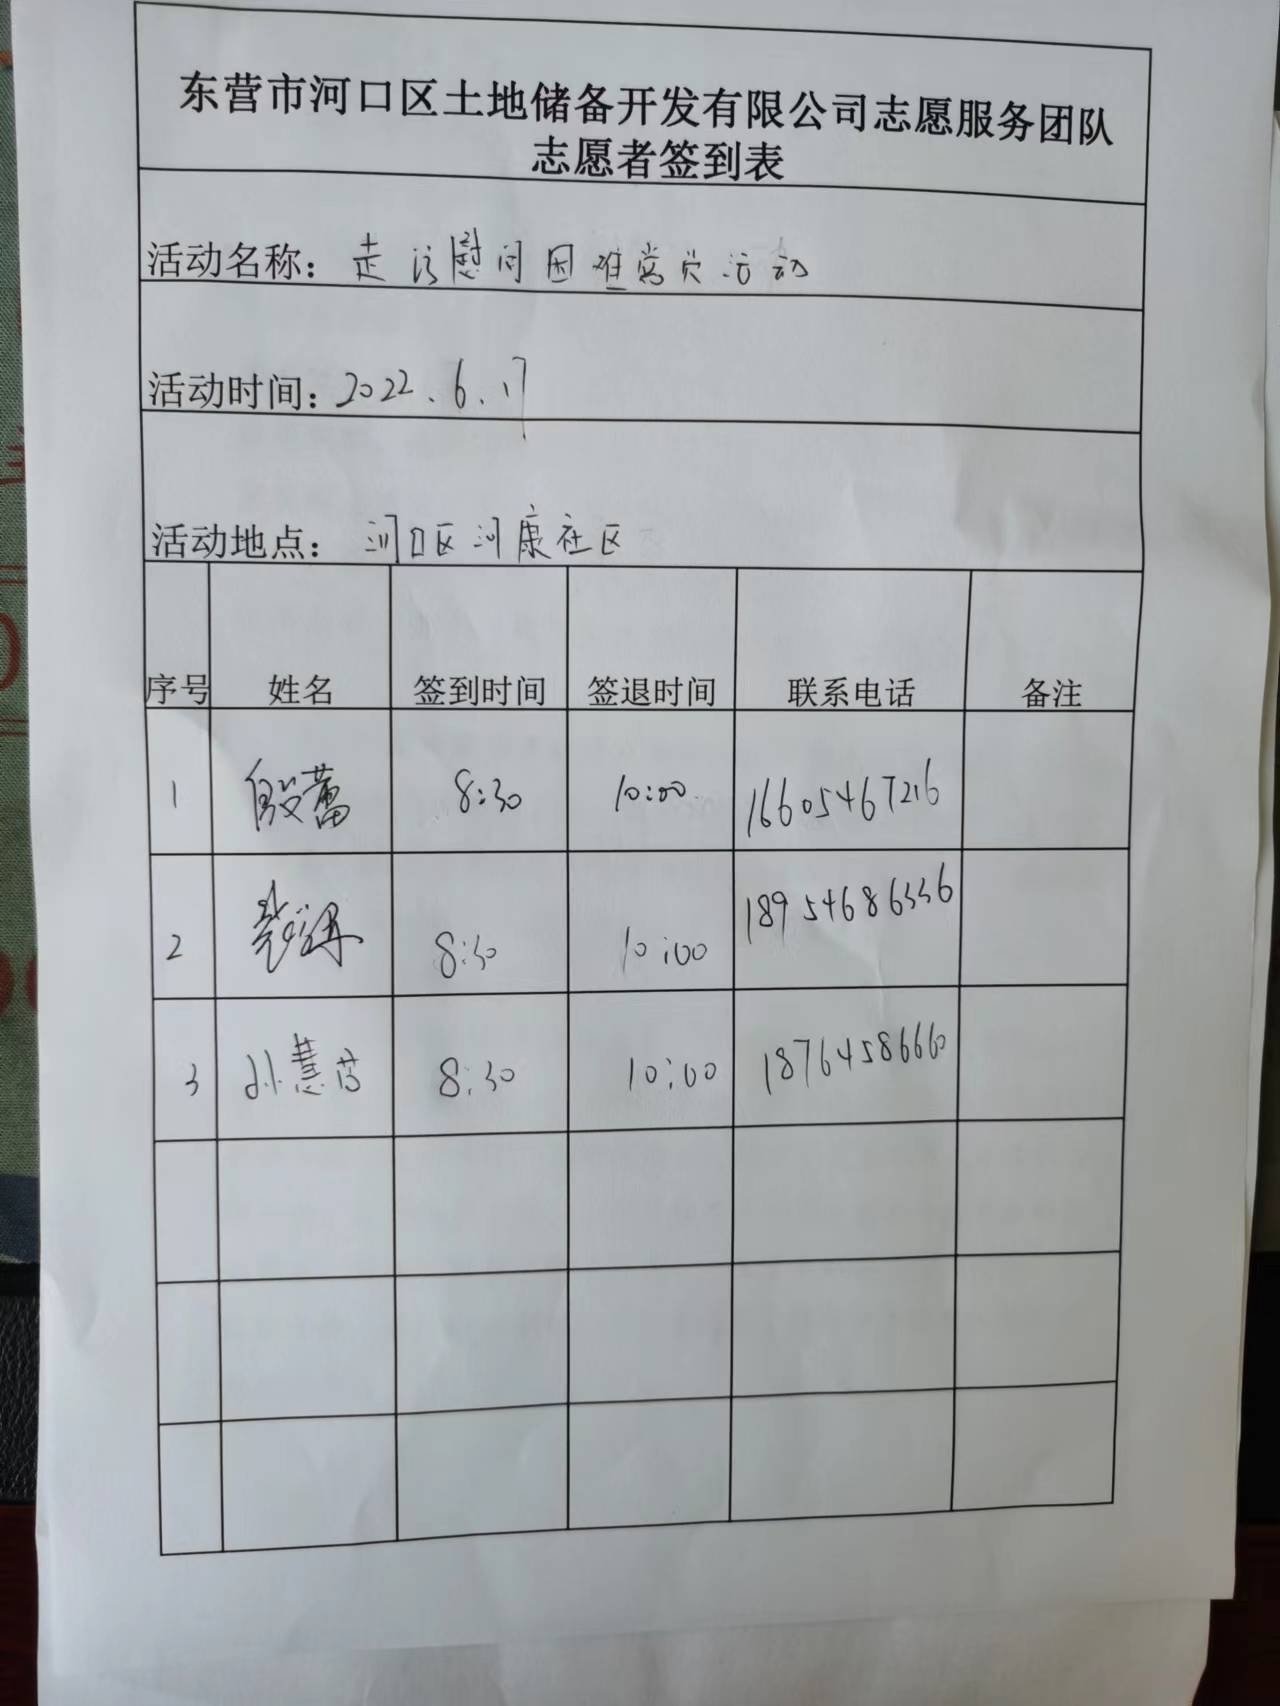 东营市河口区土地储备开发有限公司志愿服务团队
志愿者签到表
活动名称：走访慰问困难党员活动
活动时间：2022.6.17
活动地点：河口区河康社区
序号 姓名 签到时间 签退时间 联系电话 备注
1 殷蕾 8:30 10:00 16605467216
2 8:30 10:00 18954686336
3 孙慧芳 8:30 10:00 18764586660